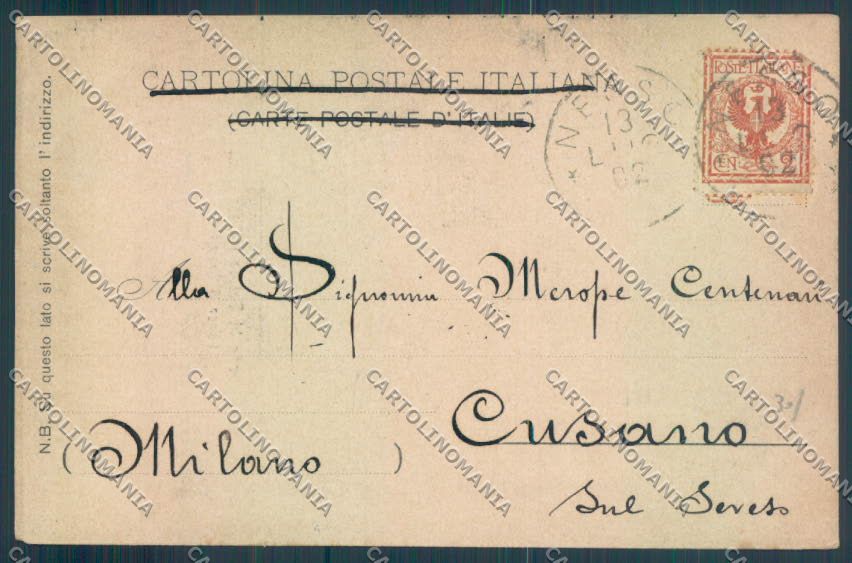 CARTOLINA POSTALE ITALIANA
(CARTE POSTALE D'ITALIE)
POSTE ITALIANE
CEN 2
13
02
N.B. Su questo lato si scrive soltanto l'indirizzo.
Alla Signorina Merope Centenari
Cusano
(Milano)
Sul Seveso
31
CARTOLINOMANIA